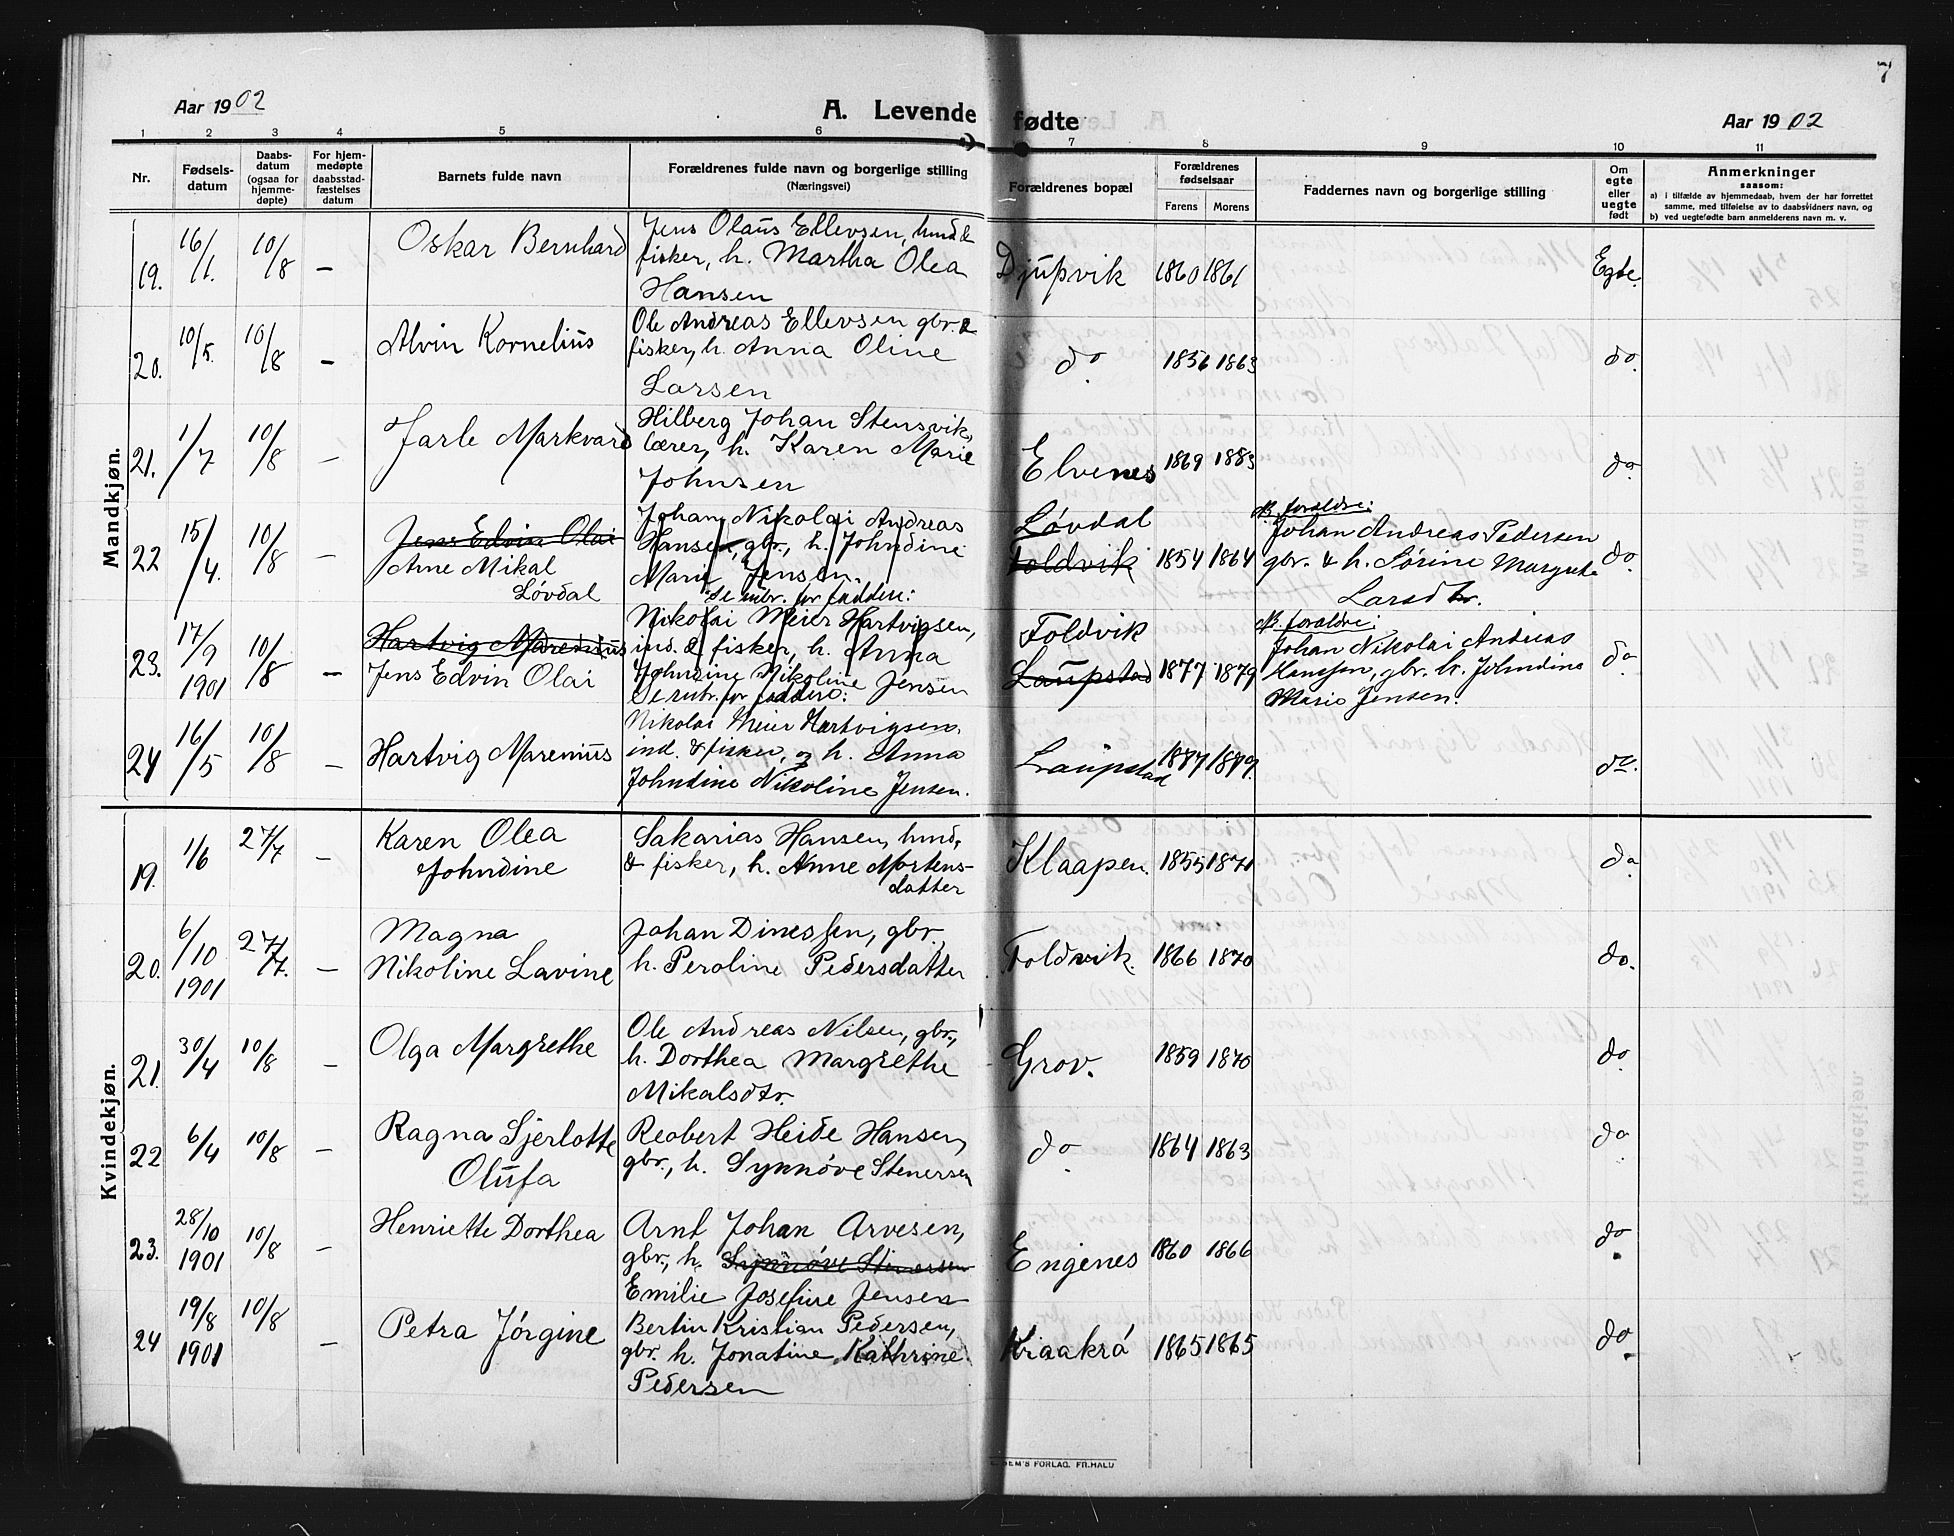 7
Aar 1902
A. Levende fødte
Aar 1902
1 2 3 4 5 6 7 8 9 10 11
Nr.
Fødsels-
datum
Daabs-
datum
(ogsaa for
hjemme-
døpte)
For hjem-
medøpte
daabsstad-
fæstelses
datum
Barnets fulde navn
Forældrenes fulde navn og borgerlige stilling
(Næringsvei)
Forældrenes bopæl
Forældrenes
fødselsaar
Farens
Morens
Faddernes navn og borgerlige stilling
Om
egte
eller
uegte
født
Anmerkninger
saasom:
a) i tilfælde av hjemmedaab, hvem der har forrettet
samme, med tilføielse av to daabsvidners navn, og
b) ved uegtefødte barn anmelderens navn m. v.
Mandkjøn.
19. 16/1. 10/8 – Oskar Bernhard
Jens Olaus Ellevsen, husd &
fisker, h. Martha Olea
Hansen
Djupvik 1860 1861 Egte.
20. 10/5. 10/8 – Alvin Kornelius
Ole Andreas Ellevsen gbr. &
fisker, h. Anna Oline
Larsen
do 1856 1863 do.
21. 1/7 10/8 – Jarle Markvard
Hilberg Johan Stensvik,
lærer, h. Karen Marie
Johnsen
Elvenes 1869 1883 do.
22 15/4. 10/8 – Jens Edvin Olai
Arne Mikal
Løvdal
Johan Nikolai Andreas
Hansen, gbr., h. Johndine
Marie Jensen.
Se rubr. for faddere:
Løvdal
Foldvik
1854 1864
Johan Andreas Pedersen
gbr. & h. Sørine Margrete
Larsdtr.
do.
23. 17/9 1901 10/8 – Hartvig Marenius
Jens Edvin Olai
Nikolai Meier Hartvigsen,
ind. & fisker, h. Anna
Johndine Nikoline Jensen
Se rubr. for faddere:
Foldvik
Laupstad
1877 1879
Johan Nikolai Andreas
Hansen, gbr. h. Johndine
Marie Jensen.
do
24 16/5 10/8 – Hartvig Marenius
Nikolai Meier Hartvigsen.
ind. & fisker, og h. Anna
Johndine Nikoline Jensen.
Laupstad 1877 1879. do.
Kvindekjøn.
19. 1/6 27/7 – Karen Olea
Johndine
Sakarias Hansen, husd,
& fisker, h. Anne Mortens-
datter
Klaapen. 1855 1871 do
20. 6/10 1901 27/7. – Magna
Nikoline Lavine
Johan Dinessen, gbr,
h. Peroline Pedersdatter
Foldvik. 1866 1870 do.
21. 30/4 10/8 – Olga Margrethe
Ole Andreas Nilsen, gbr.,
h. Dorthea Margrethe
Mikalsdtr.
Grov. 1859 1870 do
22 6/4 10/8 – Ragna Sjerlotte
Olufa
Reobert Heide Hansen,
gbr., h. Synnøve Stenersen
do 1864 1863 do
23. 28/10 1901 10/8 – Henriette Dorthea
Arnt Johan Arvesen,
gbr., h. Synnøve Stenersen
Emilie Josefine Jensen
Engenes 1860 1866 do
24 19/8 1901 10/8 – Petra Jørgine
Bertin Kristian Pedersen,
gbr. h. Jonatine Kathrine
Pedersen
Kraakrø 1865 1865 do
'S FORLAG. FR.HALD